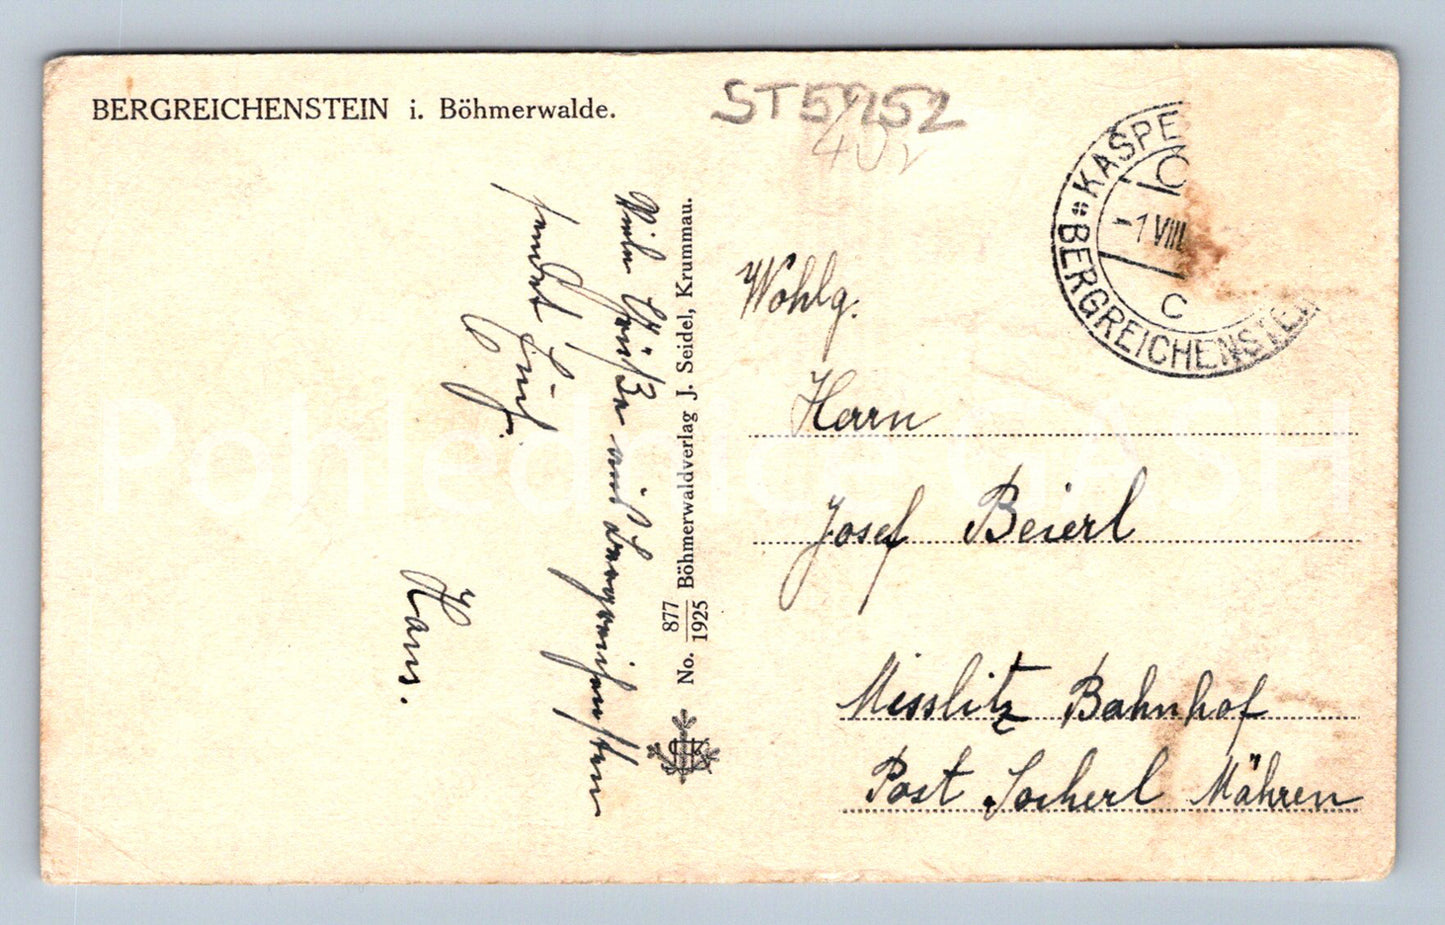 BERGREICHENSTEIN i. Böhmerwalde.
ST5
252
40,-
KASPE
-1 VIII
C
BERGREICHENSTEI
Viele Grüße aus Bergreichenstein
sendet Euch
Hans.
No. 877/1925 Böhmerwaldverlag J. Seidel, Krummau.
Wohlg.
Herrn
Josef Beierl
Misslitz Bahnhof
Post Socherl Mähren
Pohlednice CASH